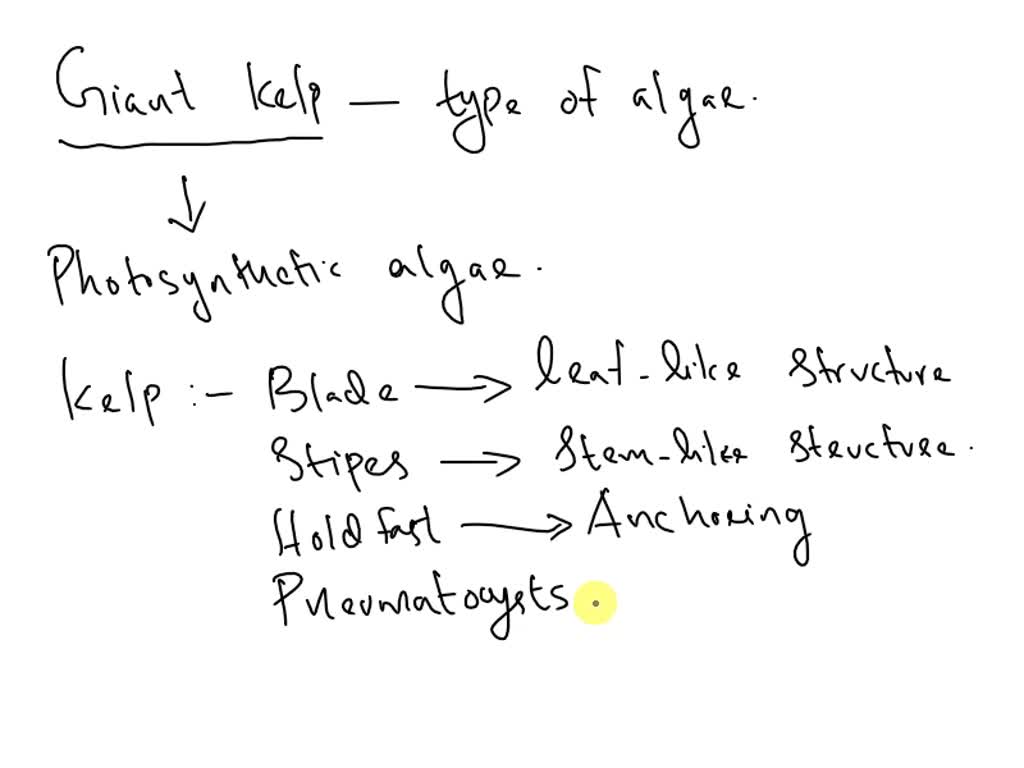 Giant kelp — type of algae.
↓
Photosynthetic algae.
kelp :- Blade → leaf-like structure
Stipes → Stem-like structure.
Holdfast → Anchoring
Pneumatocysts